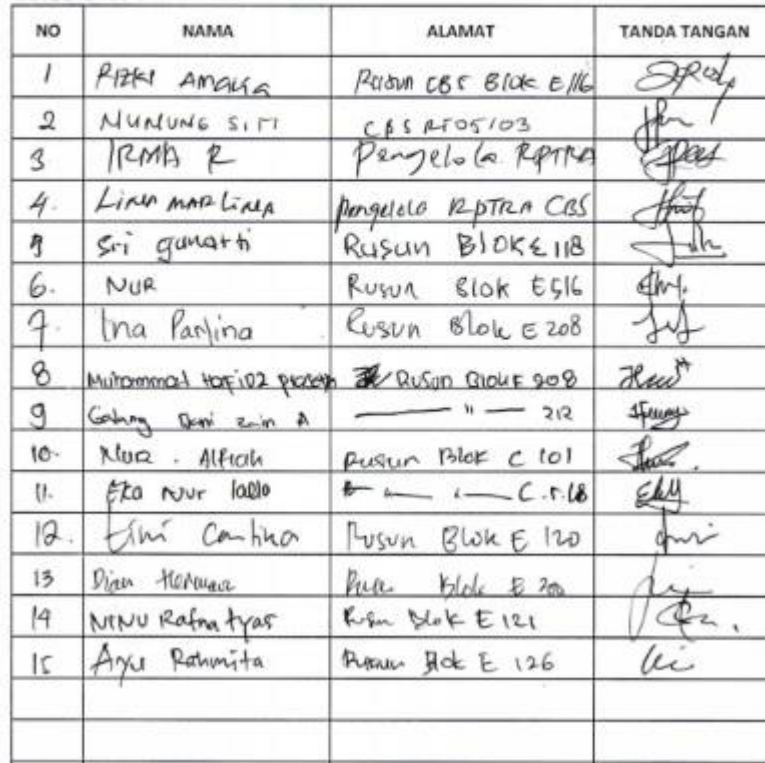 NO NAMA ALAMAT TANDA TANGAN
1 RIZKI AMALIA Rusun CBS Blok E/116
2 NUNUNG SITI CBS RT05/03
3 IRMA R Pengelola RPTRA
4. LINA MARLINA Pengelola RPTRA CBS
5 Sri gunarti Rusun BLOK E 118
6. NUR Rusun Blok E 516
7. Ina Parlina Rusun Blok E 208
8 Muhammad Hafidz Rusun Blok E 208
9 Galang Dani Zain A — " — 212
10. Nur . Alfiah Rusun Blok C 101
11. Eka Nur — " — C.5.18
12. Cantika Rusun Blok E 120
13 Dian Blok E
14 NINU Ratna tyas Rusun Blok E 121
15 Ayu Rahmita Rusun Blok E 126